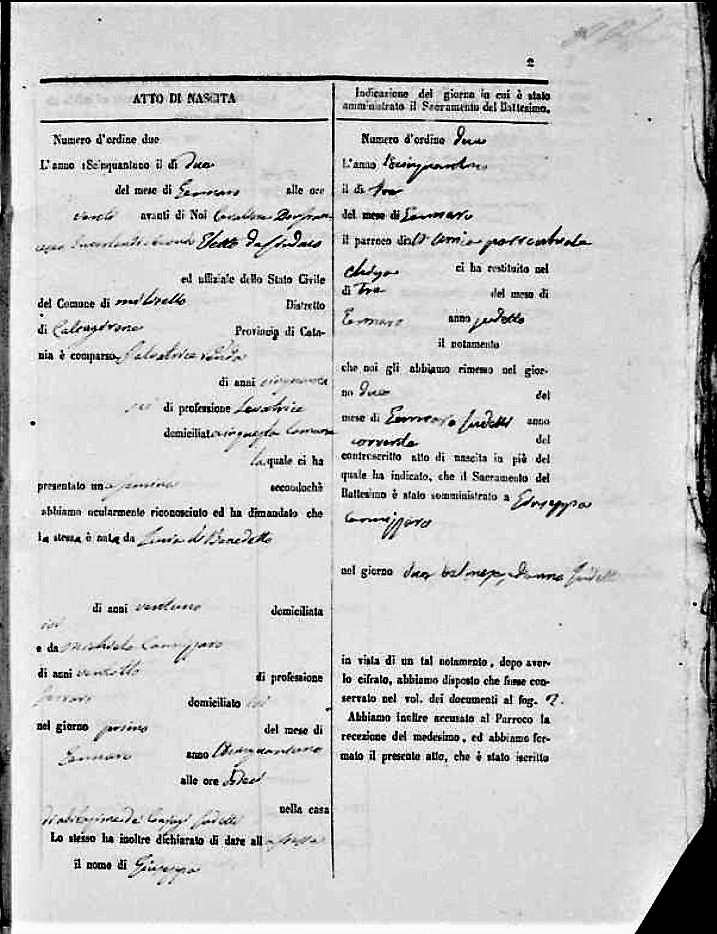 2
ATTO DI NASCITA
Numero d'ordine due
L'anno 18cinquantuno il di due
del mese di Gennaro alle ore
avanti di Noi
Eletto da Sindaco
ed uffiziale dello Stato Civile
del Comune di Distretto
di Caltagirone Provincia di Cata-
nia è comparsa Salvatrice
di anni cinquanta
sei di professione Levatrice
domiciliata
la quale ci ha
presentato una femina secondochè
abbiamo ocularmente riconosciuto ed ha dimandato che
la stessa è nata da Lucia di Benedetto
di anni ventuno domiciliata
ivi
e da Michele Cannizzaro
di anni di professione
domiciliato ivi
nel giorno primo del mese di
Gennaro anno
alle ore
nella casa
di abitazione de
Lo stesso ha inoltre dichiarato di dare alla stessa
il nome di Giuseppa
Indicazione del giorno in cui è stato
amministrato il Sacramento del Battesimo.
Numero d'ordine due
L'anno 18cinquantuno
il di tre
del mese di Gennaro
il parroco di
chiesa ci ha restituito nel
di tre del mese di
Gennaro anno sudetto
il notamento
che noi gli abbiamo rimesso nel gior-
no due del
mese di Gennaro sudetti anno
corrente del
controscritto atto di nascita in piè del
quale ha indicato, che il Sacramento del
Battesimo è stato somministrato a Giuseppa
Cannizzaro
nel giorno due del mese, ed anno sudetti
in vista di un tal notamento, dopo aver-
lo cifrato, abbiamo disposto che fusse con-
servato nel vol. dei documenti al fog. 2.
Abbiamo inoltre accusato al Parroco la
recezione del medesimo, ed abbiamo for-
mato il presente atto, che è stato iscritto